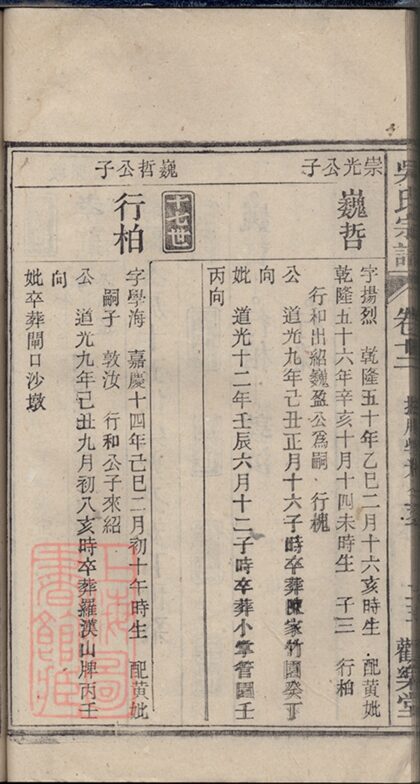 吳氏宗譜
卷十二
觀樂堂
崇光公子
巍哲
字揚烈 乾隆五十年乙巳二月十六亥時生 配黃妣
乾隆五十六年辛亥十月十四未時生 子三 行柏
行和出紹巍盈公爲嗣 行槐
公 道光九年己丑正月十六子時卒葬陳家竹園癸丁
向
妣 道光十二年壬辰六月十二子時卒葬小掌管園壬
丙向
十七世
巍哲公子
行柏
字學海 嘉慶十四年己巳二月初十午時生 配黃妣
嗣子 敦汝 行和公子來紹
公 道光九年己丑九月初八亥時卒葬羅漢山牌丙壬
向
妣卒葬閘口沙墩